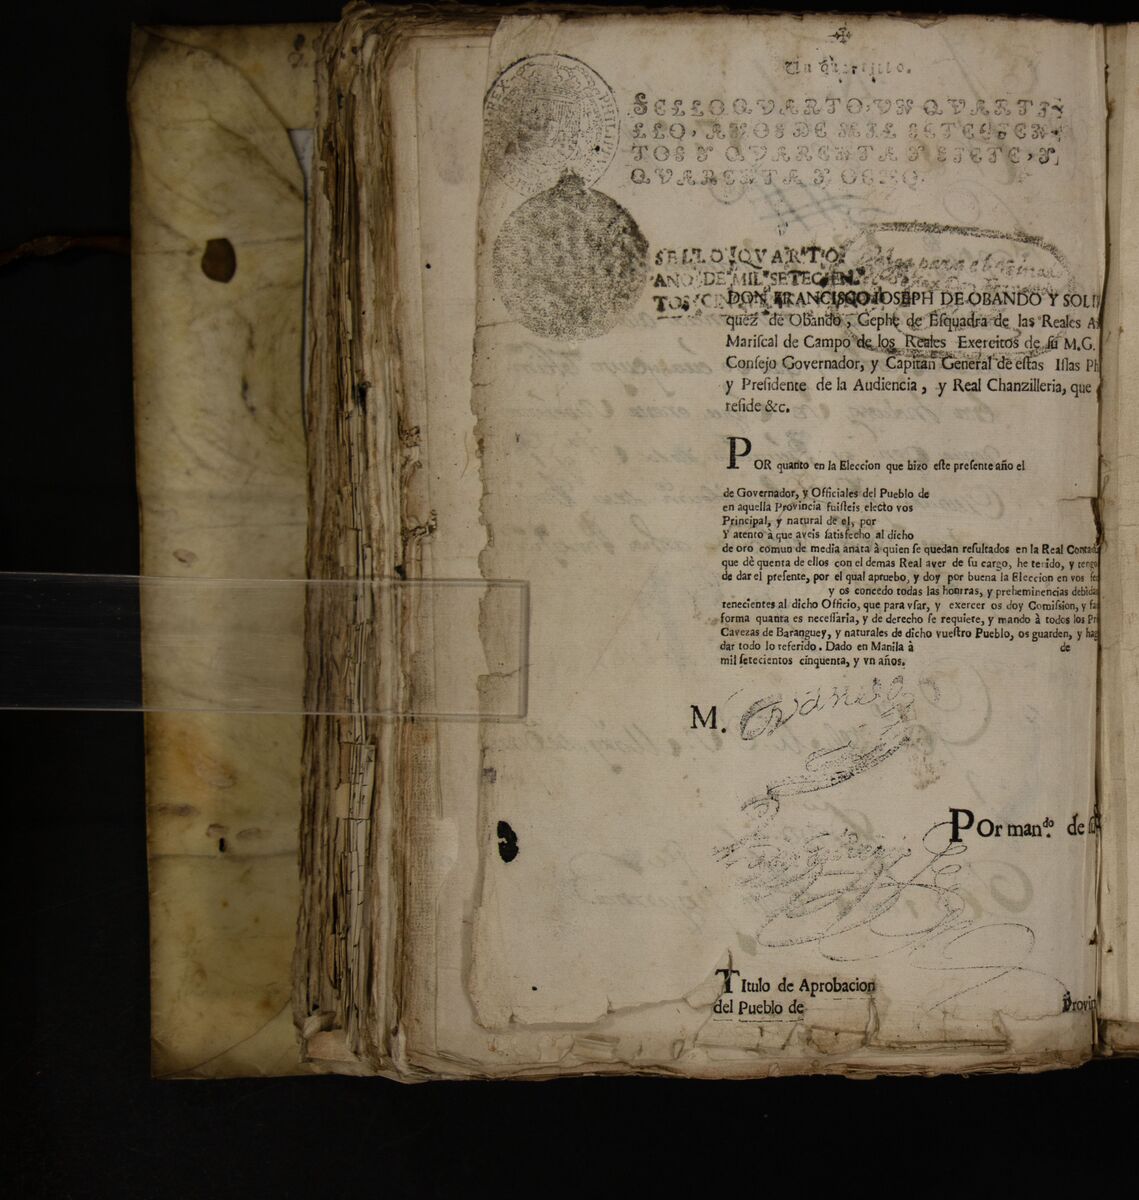 Un quartillo.
SELLO QVARTO, VN QVARTI-
LLO, AÑOS DE MIL SETECIEN-
TOS Y QVARENTA Y SIETE, Y
QVARENTA Y OCHO.
SELLO QVARTO
AÑO DE MIL SETECIEN
TOS
DON FRANCISCO JOSEPH DE OBANDO Y SOLI
quez de Obando, Gephe de Eſquadra de las Reales A
Mariſcal de Campo de los Reales Exercitos de ſu M.G.
Conſejo Governador, y Capitan General de eſtas Iſlas Ph
y Preſidente de la Audiencia, y Real Chanzilleria, que
reſide &c.
POR quanto en la Eleccion que hizo eſte preſente año el
de Governador, y Officiales del Pueblo de
en aquella Provincia fuiſteis electo vos
Principal, y natural de el, por
Y atento à que aveis ſatisfecho al dicho
de oro comun de media anata à quien ſe quedan reſultados en la Real Contadu
que dè quenta de ellos con el demas Real aver de ſu cargo, he tenido, y tengo
de dar el preſente, por el qual apruebo, y doy por buena la Eleccion en vos fec
y os concedo todas las honrras, y preheminencias debidas
tenecientes al dicho Officio, que para vſar, y exercer os doy Comiſsion, y fa
forma quanta es neceſſaria, y de derecho ſe requiere, y mando à todos los Pr
Cavezas de Baranguey, y naturales de dicho vueſtro Pueblo, os guarden, y hag
dar todo lo referido. Dado en Manila à de
mil ſetecientos cinquenta, y vn años.
M. Ovando
POr man.do de ſu
TItulo de Aprobacion
del Pueblo de Provin